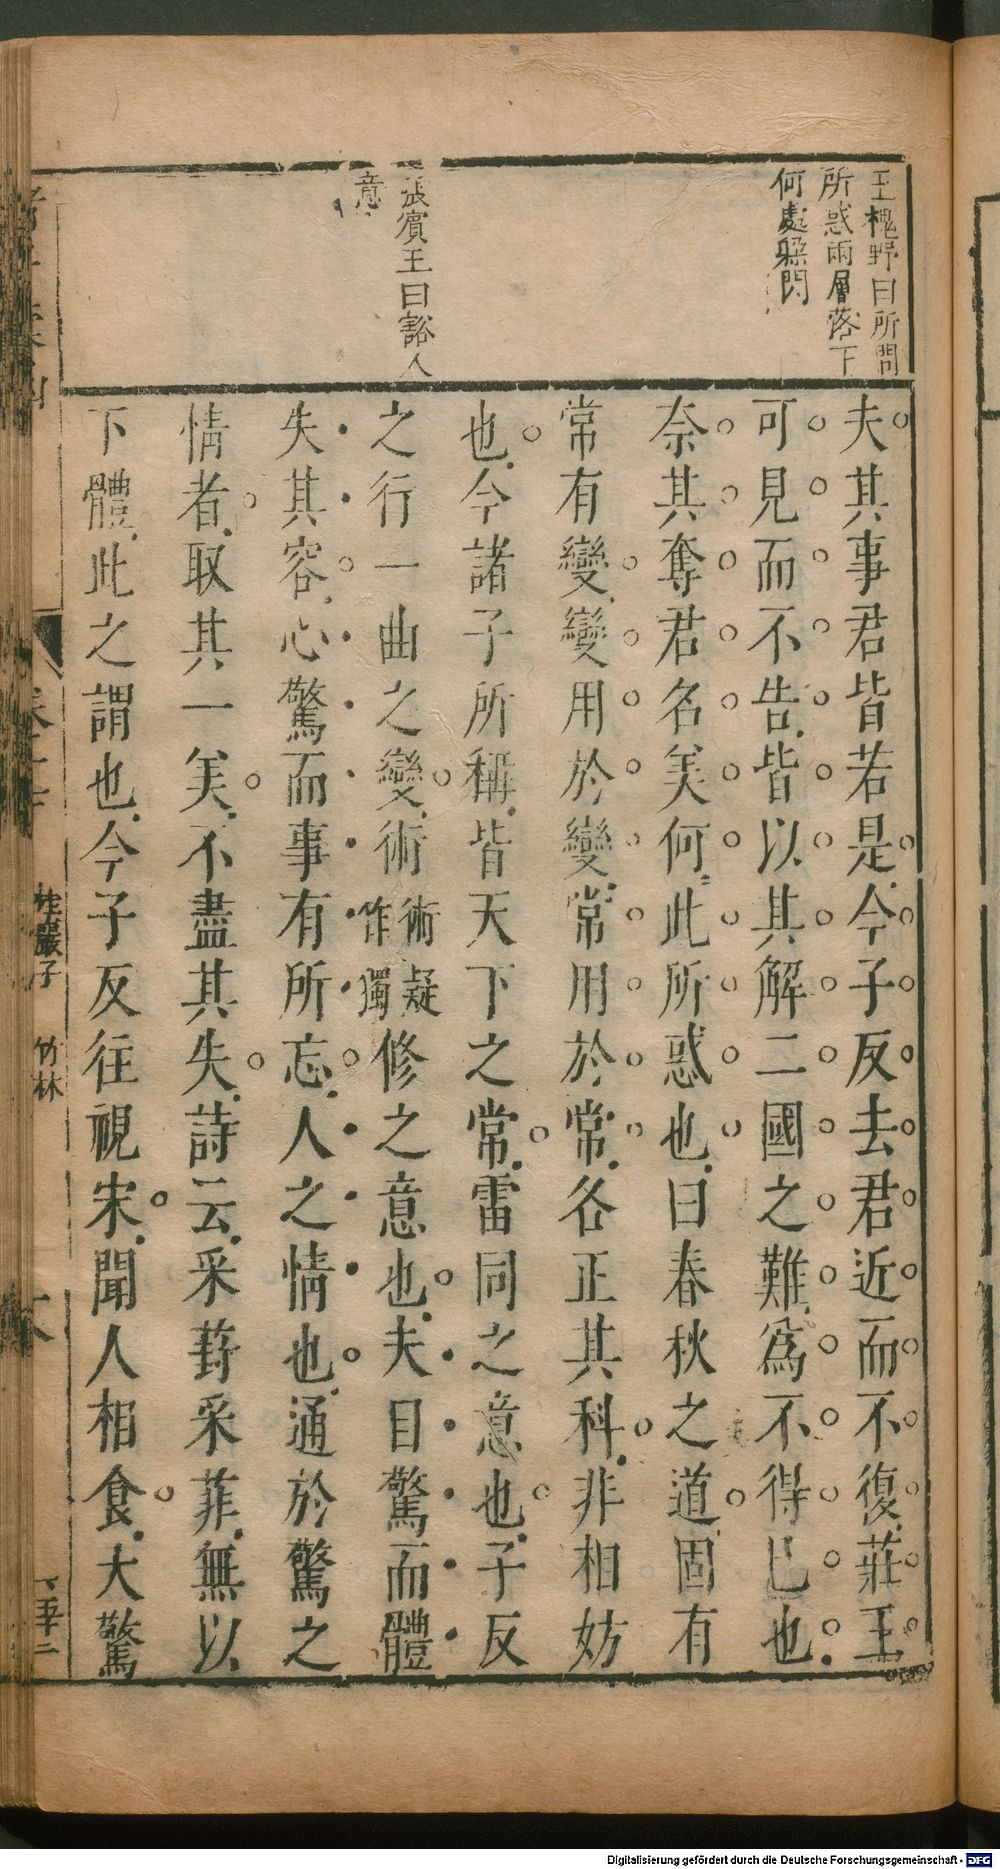 王槐野曰所問
所惑兩層落下
何處躱閃
張賓王曰豁人
意
夫其事君皆若是今子反去君近而不復莊王
可見而不告皆以其解二國之難爲不得已也
奈其奪君名美何此所惑也曰春秋之道固有
常有變變用於變常用於常各正其科非相妨
也今諸子所稱皆天下之常雷同之意也子反
之行一曲之變術術疑作獨修之意也夫目驚而體
失其容心驚而事有所忘人之情也通於驚之
情者取其一美不盡其失詩云采葑采菲無以
下體此之謂也今子反往視宋聞人相食大驚
桂巖子 竹林
Digitalisierung gefördert durch die Deutsche Forschungsgemeinschaft - DFG